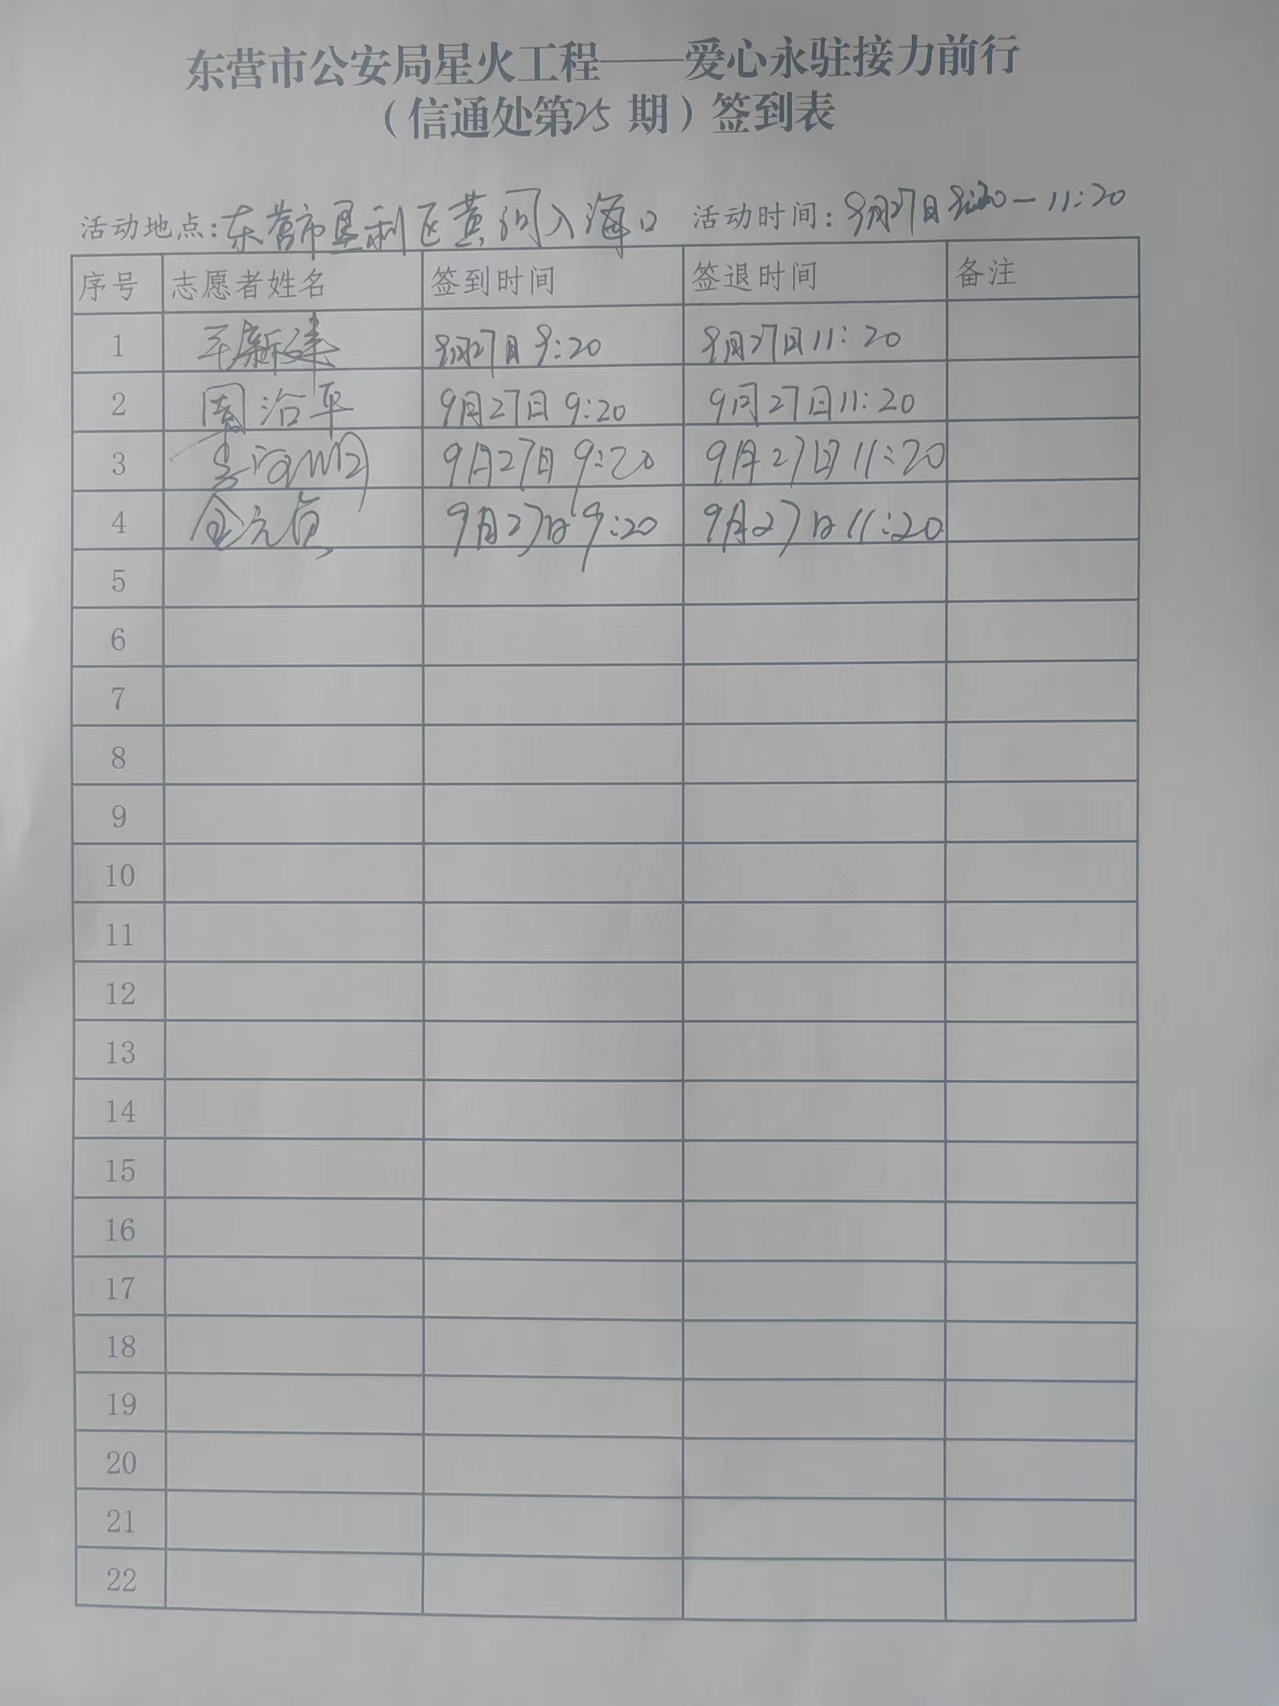 东营市公安局星火工程——爱心永驻接力前行
（信通处第25期）签到表
活动地点：东营市垦利区黄河入海口 活动时间：9月27日9:20—11:20
序号 志愿者姓名 签到时间 签退时间 备注
1 新建 9月27日9:20 9月27日11:20
2 周治平 9月27日9:20 9月27日11:20
3 9月27日9:20 9月27日11:20
4 金元贞 9月27日9:20 9月27日11:20
5
6
7
8
9
10
11
12
13
14
15
16
17
18
19
20
21
22